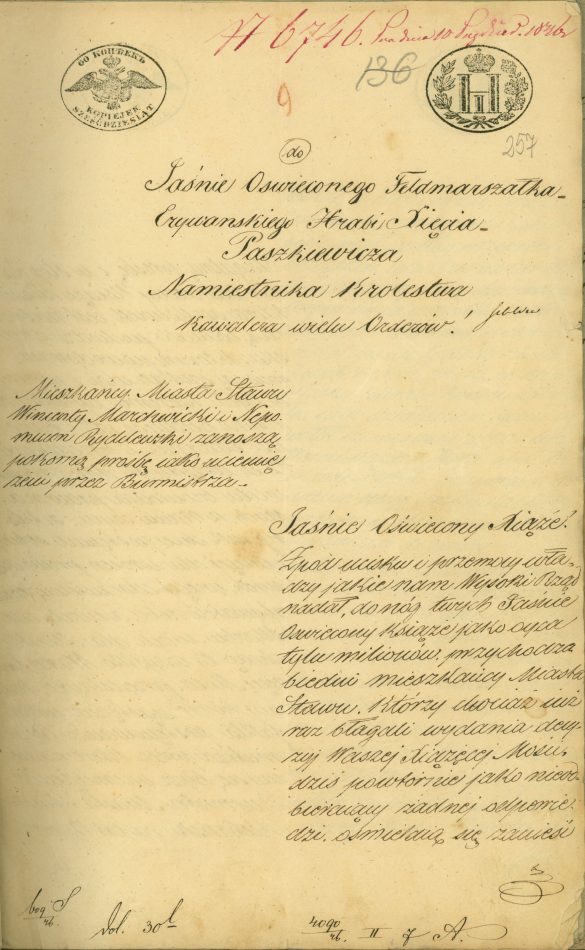 N 6746. Pra dnia 10 Grudnia 1846
60 КОПѢЕКЪ
KOPIEJEK
SZEŚĆDZIESIĄT
136
9
H I
257
do
Jaśnie Oswieconego Feldmarszałka
Erywanskiego Hrabi Xięcia
Paszkiewicza
Namiestnika Królestwa
Kawalera wielu Orderów!
Mieszkańcy Miasta Stawu
Wincenty Marchwicki i Nepo-
mucen Rydelewski zanoszą
pokorną prośbę jako uciemię
żeni przez Burmistrza.
Jaśnie Oświecony Xiąże!
Zpod ucisku i przemocy wła-
dzy jakie nam Wysoki Rząd
nadał, do nóg twych Jaśnie
Oswiecony Książe jako Oyca
tylu milionów, przychodzą
biedni mieszkańcy Miasta
Stawu, którzy chociaż już
raz błagali wydania decy-
zyj Waszej Xiążęcej Mości
dziś powtórnie jako nieod-
bierający żadnej odpowie-
dzi, ośmielają się zanieść
Dol. 30
II